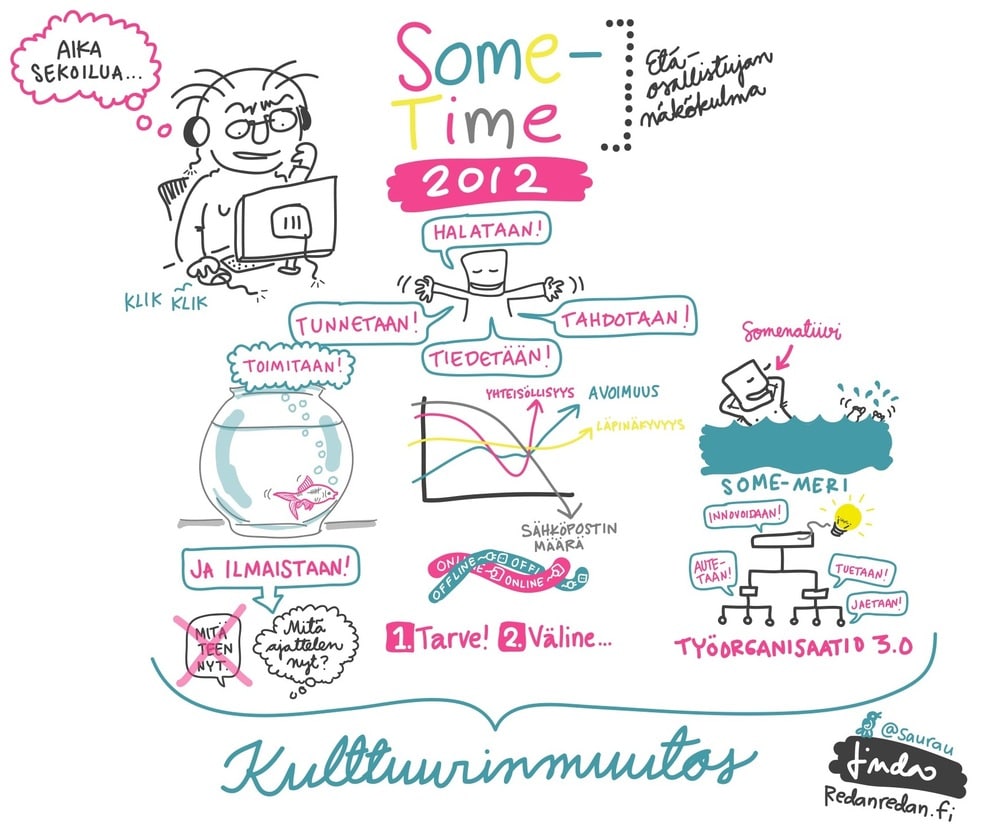 AIKA
SEKOILUA...
Some-
Time
2012
Etä-
osallistujan
näkökulma
KLIK KLIK
HALATAAN!
TUNNETAAN!
TAHDOTAAN!
TIEDETÄÄN!
TOIMITAAN!
JA ILMAISTAAN!
MITÄ
TEEN
NYT?
Mitä
ajattelen
nyt?
YHTEISÖLLISYYS
AVOIMUUS
LÄPINÄKYVYYS
SÄHKÖPOSTIN
MÄÄRÄ
ONLI
OFFLINE
OFFL
NE
ONLINE
1. Tarve! 2. Väline...
Somenatiivi
SOME-MERI
INNOVOIDAAN!
AUTE-
TAAN!
TUETAAN!
JAETAAN!
TYÖORGANISAATIO 3.0
Kulttuurinmuutos
@saurau
Redanredan.fi